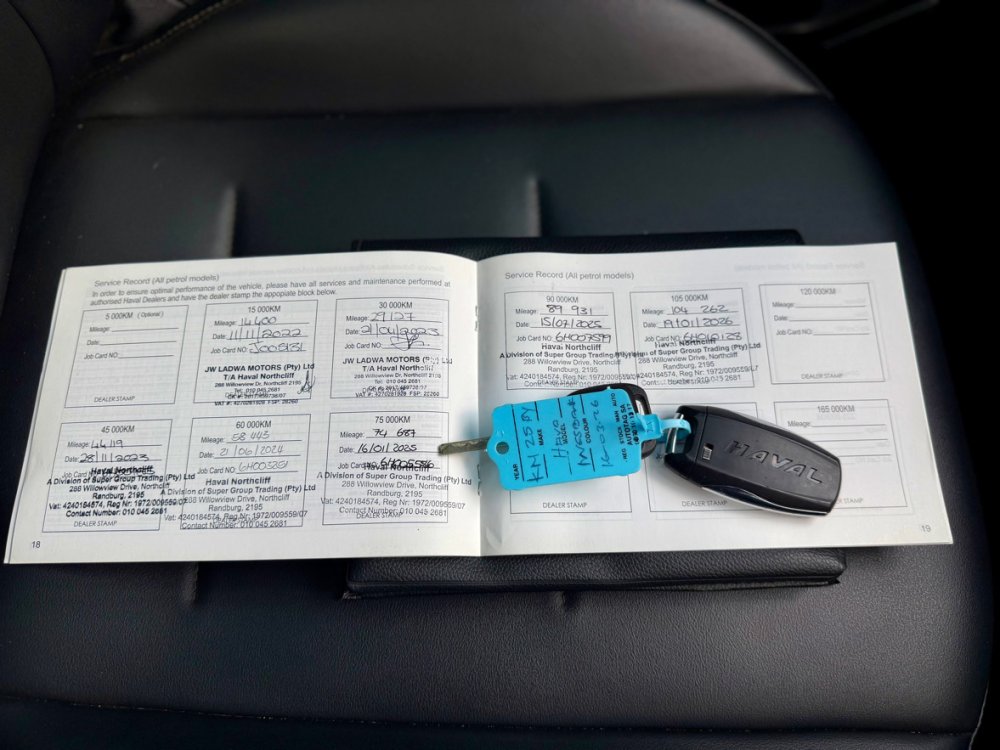 Service Record (All petrol models)
In order to ensure optimal performance of the vehicle, please have all services and maintenance performed at
authorised Haval Dealers and have the dealer stamp the appopiate block below.
5 000KM (Optional)
Mileage:
Date:
Job Card NO:
DEALER STAMP
15 000KM
Mileage: 14400
Date: 11/11/2022
Job Card NO: J009131
JW LADWA MOTORS (Pty) Ltd
T/A Haval Northcliff
288 Willowview Dr, Northcliff 2195
Tel: 010 045 2681
30 000KM
Mileage: 29127
Date: 21/04/2023
Job Card NO:
JW LADWA MOTORS (Pty) Ltd
T/A Haval Northcliff
288 Willowview Dr, Northcliff 2195
Tel: 010 045 2681
45 000KM
Mileage: 44119
Date: 28/11/2023
Job Card NO:
Haval Northcliff
A Division of Super Group Trading (Pty) Ltd
288 Willowview Drive, Northcliff
Randburg, 2195
Vat: 4240184574, Reg Nr: 1972/009559/07
Contact Number: 010 045 2681
DEALER STAMP
60 000KM
Mileage: 58 445
Date: 21/06/2024
Job Card NO: GH003281
Haval Northcliff
A Division of Super Group Trading (Pty) Ltd
288 Willowview Drive, Northcliff
Randburg, 2195
Vat: 4240184574, Reg Nr: 1972/009559/07
Contact Number: 010 045 2681
75 000KM
Mileage: 74 687
Date: 16/01/2025
Job Card NO:
Haval Northcliff
A Division of Super Group Trading (Pty) Ltd
288 Willowview Drive, Northcliff
Randburg, 2195
Vat: 4240184574, Reg Nr: 1972/009559/07
Contact Number: 010 045 2681
DEALER STAMP
18
Service Record (All petrol models)
90 000KM
Mileage: 89 931
Date: 15/07/2025
Job Card NO: GH007579
Haval Northcliff
A Division of Super Group Trading (Pty) Ltd
288 Willowview Drive, Northcliff
Randburg, 2195
DEALER STAMP
105 000KM
Mileage: 104 262
Date: 19/01/2026
Job Card NO:
Haval Northcliff
288 Willowview Drive, Northcliff
Randburg, 2195
DEALER STAMP
120 000KM
Mileage:
Date:
Job Card NO:
DEALER STAMP
165 000KM
DEALER STAMP
DEALER STAMP
19
YEAR
MAKE
MODEL
COLOUR
KM 25 PY
16-03-26
REG
STOCK
MAN
AUTO
AUTOTAG SA
HAVAL